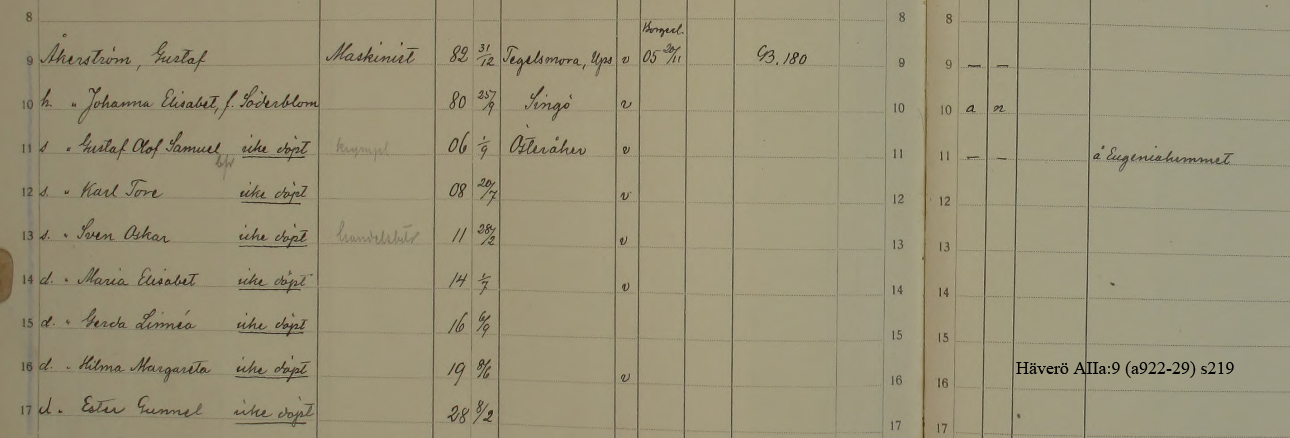 8 8 8
Borgerl.
9 Åkerström, Gustaf Maskinist 82 31/12 Tegelsmora, Ups v 05 20/11 GB. 180 9 9 — —
10 h. " Johanna Elisabet, f. Söderblom 80 25/9 Singö v 10 10 a n
11 s " Gustaf Olof Samuel icke döpt 06 1/9 Österåker v 11 11 — — å Eugeniahemmet
12 s. " Karl Tore icke döpt 08 20/7 v 12 12
13 s. " Sven Oskar icke döpt 11 28/2 v 13 13
14 d. " Maria Elisabet icke döpt 14 1/7 v 14 14
15 d. " Gerda Linnéa icke döpt 16 6/9 15 15
16 d. " Hilma Margareta icke döpt 19 v 16 16
Häverö AIIa:9 (a922-29) s219
17 d. " Ester Gunnel icke döpt 28 8/2 17 17